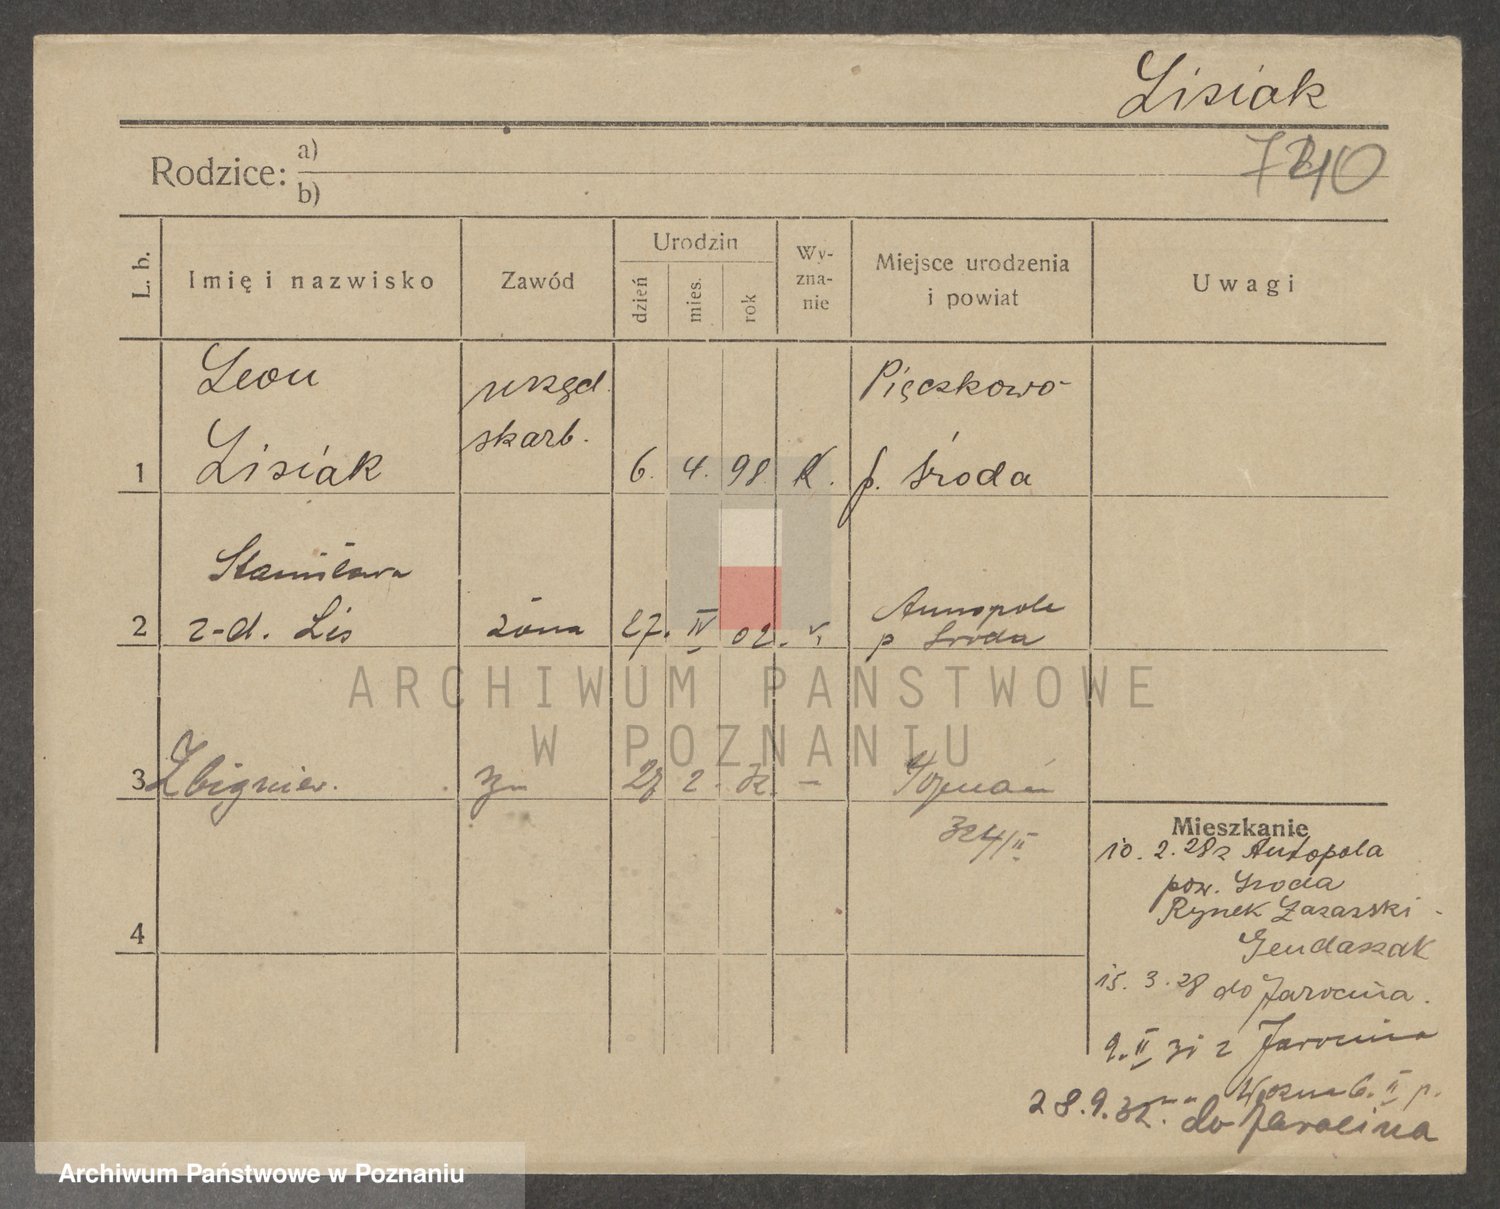 Lisiak
Rodzice: a)
b)
L. b.
Imię i nazwisko
Zawód
Urodzin
dzień
mies.
rok
Wy-
zna-
nie
Miejsce urodzenia
i powiat
Uwagi
Leon
urzęd.
Pięczkowo
skarb.
1 Lisiak 6. 4. 98 K. p. Środa
Stanisława
2 z-d. Lis żona 27. IV 02.
Annopole
p Środa
ARCHIWUM PAŃSTWOWE
W POZNANIU
3 Zbigniew. 2 32. – Poznań
324/II
Mieszkanie
10. 2. 28 z
pow. Środa
Rynek Łazarski
4
15. 3. 28 do Jarocina.
9. II 31 z Jarocina
6. II p.
28.9.32. do Jarocina
Archiwum Państwowe w Poznaniu